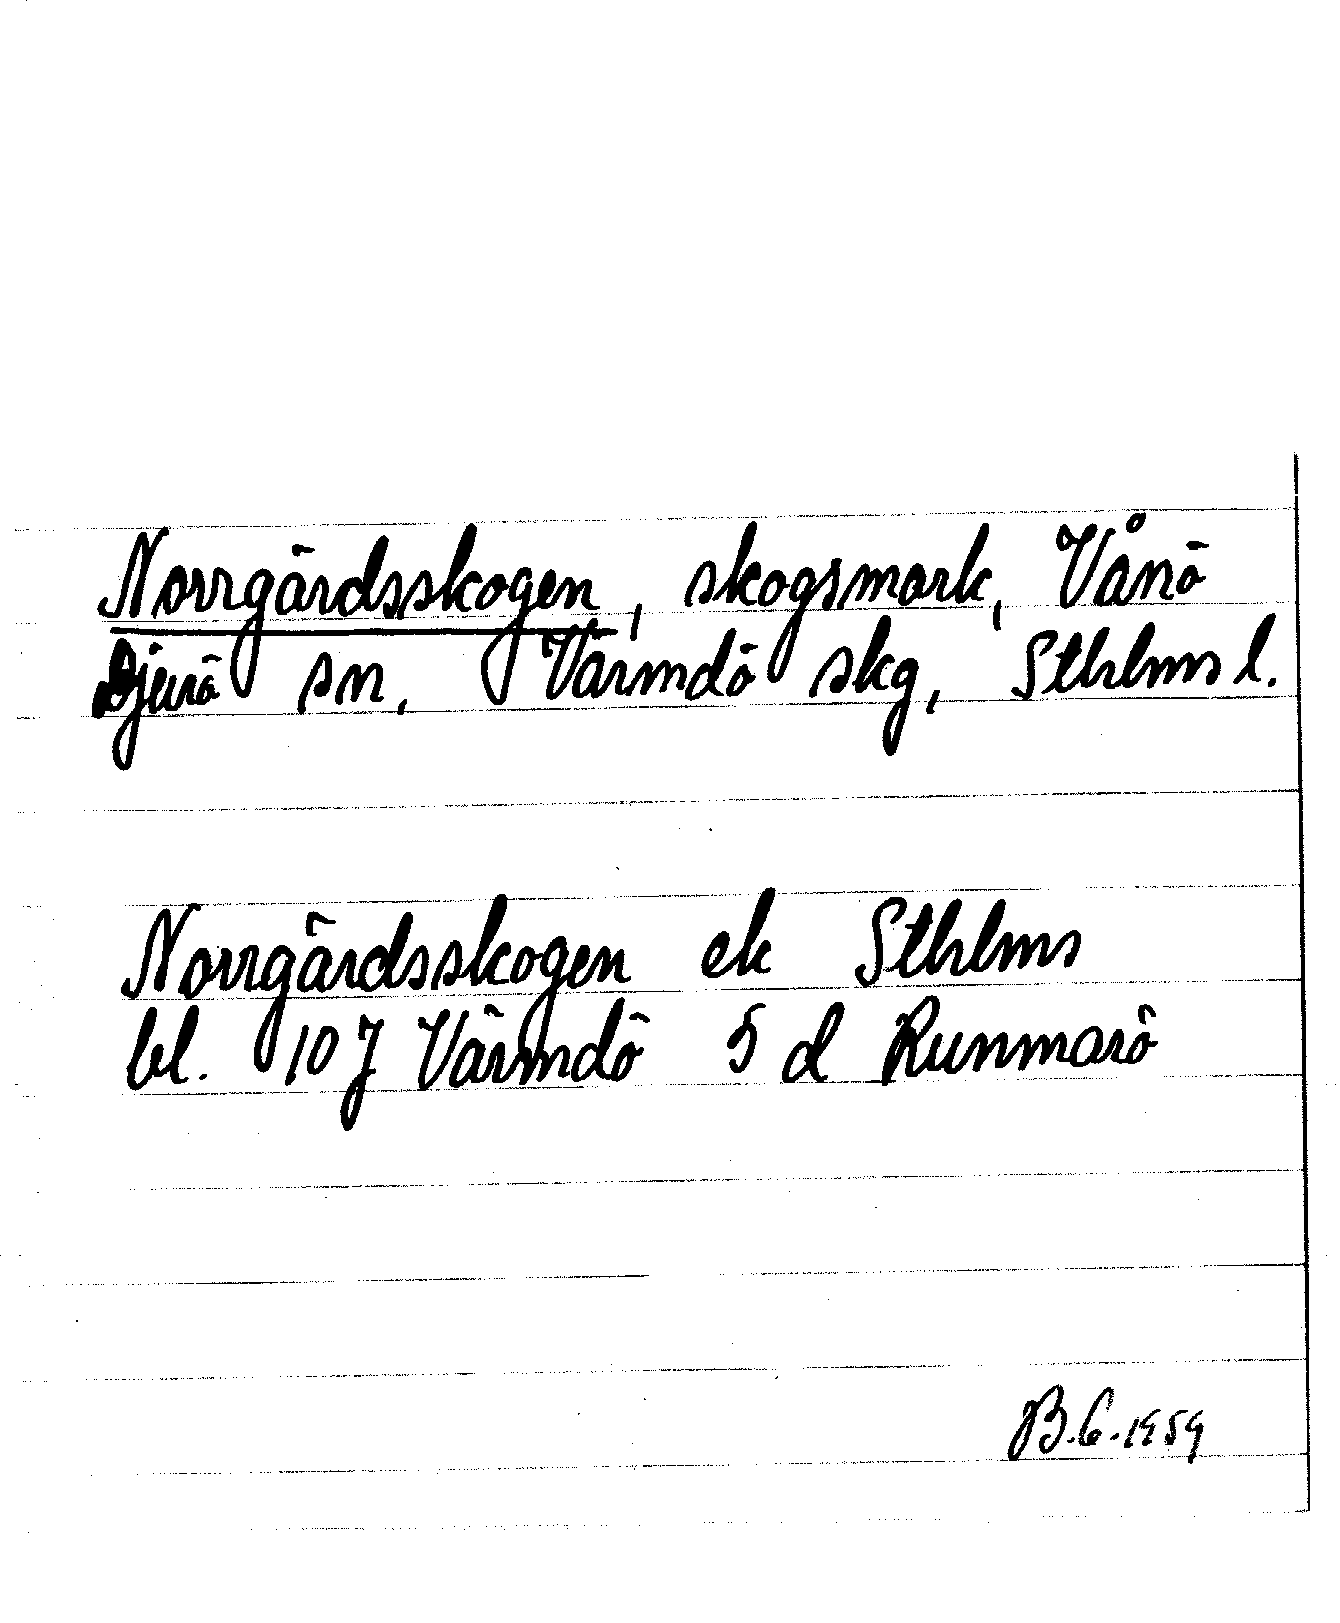 Norrgårdsskogen, skogsmark, Vånö
Djurö sn, Värmdö skg, Sthlms l.
Norrgårdsskogen ek Sthlms
bl. 107 Värmdö 5 d Runmarö
B.G. 1959